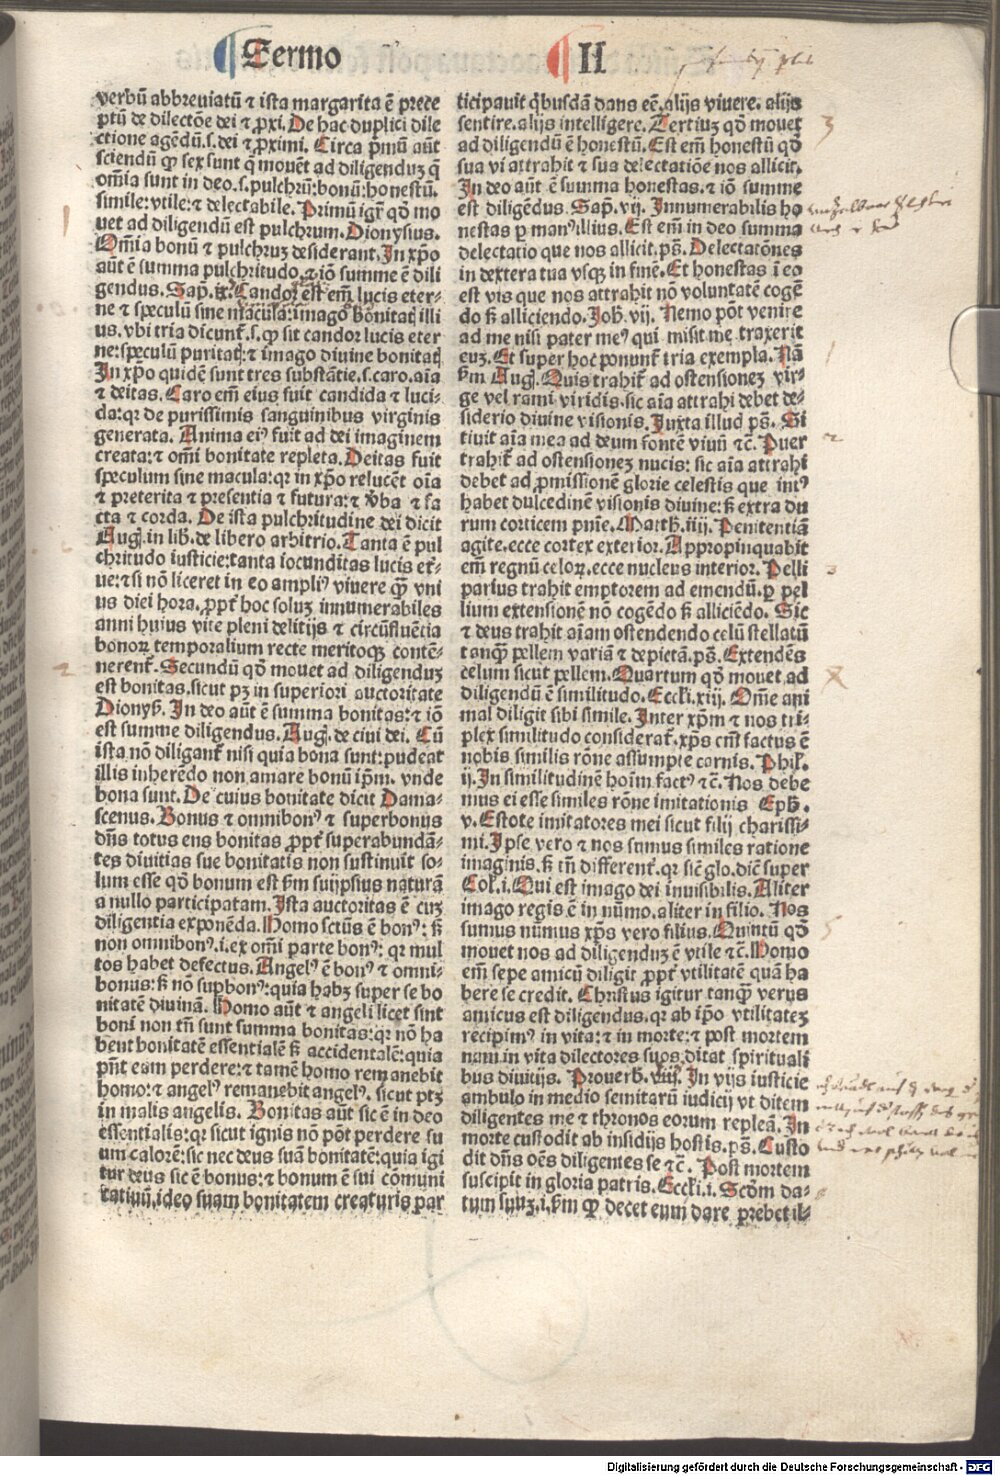 Sermo II
verbū abbreuiatū ⁊ ista margarita ē prece
ptū de dilectōe dei ⁊ ꝓxi. De hac duplici dile
ctione agēdū.s.dei ⁊ ꝓximi. Circa pͥmū aūt
sciendū ꝙ sex sunt q̄ mouēt ad diligenduꝫ q̄
om̄ia sunt in deo.s.pulchrū: bonū: honestū.
simile: vtile: ⁊ delectabile. Primū igr̄ qd̄ mo
uet ad diligendū est pulchrum. Dionysius.
Om̄ia bonū ⁊ pulchruꝫ desiderant. In xp̄o
aūt ē summa pulchritudo.⁊ iō summe ē dili
gendus. Sap̄. Candor est em̄ lucis eter⸗
ne ⁊ speculū sine macula: imago bonitatꝭ illi
us. vbi tria dicunt̄.s.ꝙ sit candor lucis eter
ne: speculū puritatꝭ: ⁊ imago diuine bonitatꝭ
In xp̄o quidē sunt tres substātie.s.caro.aīa
⁊ deitas. Caro em̄ eius fuit candida ⁊ luci⸗
da: qꝛ de purissimis sanguinibus virginis
generata. Anima eiꝰ fuit ad dei imaginem
creata: ⁊ om̄i bonitate repleta. Deitas fuit
speculum sine macula: qꝛ in xp̄o relucēt oīa
⁊ preterita ⁊ presentia ⁊ futura: ⁊ v̄ba ⁊ fa
cta ⁊ corda. De ista pulchritudine dei dicit
Augꝭ. in lib̄. de libero arbitrio. Tanta ē pul
chritudo iusticie: tanta iocunditas lucis et̄⸗
ue: ⁊ si nō liceret in eo ampliꝰ viuere ꝙ̄ vni
us diei hora. ꝓpt̄ hoc soluꝫ innumerabiles
anni huius vite pleni delitijs ⁊ circūfluētia
bonoꝝ temporalium recte meritoqꝫ contē⸗
nerent̄. Secundū qd̄ mouet ad diligenduꝫ
est bonitas. sicut pꝫ in superiori auctoritate
Dionys̄. In deo aūt ē summa bonitas: ⁊ iō
est summe diligendus. Augꝭ. de ciui dei. Cū
ista nō diligant̄ nisi quia bona sunt: pudeat
illis inherēdo non amare bonū ip̄m. vnde
bona sunt. De cuius bonitate dicit Dama⸗
scenus. Bonus ⁊ omnibonꝰ ⁊ superbonus
dn̄s totus ens bonitas ꝓpt̄ superabundā⸗
tes diuitias sue bonitatis non sustinuit so⸗
lum esse qd̄ bonum est ẜm suijpsius naturā
a nullo participatam. Ista auctoritas ē cuꝫ
diligentia exponēda. Homo sctūs ē bonꝰ: sꝫ
non omnibonꝰ.i.ex om̄i parte bonꝰ: qꝛ mul
tos habet defectus. Angelꝰ ē bonꝰ ⁊ omni⸗
bonus: sꝫ nō supbonꝰ: quia habꝫ super se bo
nitatē diuinā. Homo aūt ⁊ angeli licet sint
boni non tn̄ sunt summa bonitas: qꝛ nō ha
bent bonitatē essentialē sꝫ accidentalē: quia
pn̄t eam perdere: ⁊ tamē homo remanebit
homo: ⁊ angelꝰ remanebit angelꝰ. sicut ptꝫ
in malis angelis. Bonitas aūt sic ē in deo
essentialis: qꝛ sicut ignis nō pōt perdere su
um calorē: sic nec deus suā bonitatē: quia igi
tur deus sic ē bonus: ⁊ bonum ē sui cōmuni
catiuū. ideo suam bonitatem creaturis par
ticipauit qͥbusdā dans eē. alijs viuere. alijs
sentire. alijs intelligere. Tertiuꝫ qd̄ mouet
ad diligendū ē honestū. Est em̄ honestū qd̄
sua vi attrahit ⁊ sua delectatiōe nos allicit.
In deo aūt ē summa honestas. ⁊ iō summe
est diligēdus. Sap̄. vij. Innumerabilis ho
nestas ꝑ manꝰ illius. Est em̄ in deo summa
delectatio que nos allicit. ps̄. Delectatōnes
in dextera tua vsqꝫ in finē. Et honestas ī eo
est vis que nos attrahit nō voluntatē cogē
do sꝫ alliciendo. Joh̄. vij. Nemo pōt venire
ad me nisi pater meꝰ qui misit me traxerit
euꝫ. Et super hoc ponunt̄ tria exempla. Nā
ẜm Augꝭ. Quis trahit̄ ad ostensioneꝫ vir⸗
ge vel rami viridis. sic aīa attrahi debet de⸗
siderio diuine visionis. Juxta illud ps̄. Si
tiuit aīa mea ad deum fontē viuū ⁊c̄. Puer
trahit̄ ad ostensioneꝫ nucis: sic aīa attrahi
debet ad ꝓmissionē glorie celestis que intꝰ
habet dulcedinē visionis diuine: sꝫ extra du
rum corticem pnīe. Matth̄. iij. Penitentiā
agite. ecce cortex exterior. Appropinquabit
em̄ regnū celoꝝ. ecce nucleus interior. Pelli
parius trahit emptorem ad emendū. ꝑ pel
lium extensionē nō cogēdo sꝫ alliciēdo. Sic
⁊ deus trahit aīam ostendendo celū stellatū
tanꝙ̄ pellem variā ⁊ depictā. ps̄. Extendēs
celum sicut pellem. Quartum qd̄ mouet ad
diligendū ē similitudo. Eccli. xiij. Om̄e ani
mal diligit sibi simile. Inter xp̄m ⁊ nos tri⸗
plex similitudo considerat̄. xp̄s em̄ factus ē
nobis similis rōne assumpte carnis. Phil̄.
ij. In similitudinē hoīm factꝰ ⁊c̄. Nos debe
mus ei esse similes rōne imitationis Eph̄.
v. Estote imitatores mei sicut filij charissi⸗
mi. Ipse vero ⁊ nos sumus similes ratione
imaginis. sꝫ tn̄ different̄. qꝛ sic̄ glo. dic̄ super
Col̄. i. Qui est imago dei inuisibilis. Aliter
imago regis ē in nūmo. aliter in filio. Nos
sumus nūmus xp̄s vero filius. Quintū qd̄
mouet nos ad diligenduꝫ ē vtile ⁊c̄. Homo
em̄ sepe amicū diligit ꝓpt̄ vtilitatē quā ha
bere se credit. Christus igitur tanꝙ̄ verus
amicus est diligendus. qꝛ ab ip̄o vtilitateꝫ
recipimꝰ in vita: ⁊ in morte: ⁊ post mortem
nam in vita dilectores suos ditat spirituali
bus diuitijs. Prouerb̄. viij. In vijs iusticie
ambulo in medio semitarū iudicij vt ditem
diligentes me ⁊ thronos eorum repleā. In
morte custodit ab insidijs hostis. ps̄. Custo
dit dn̄s oēs diligentes se ⁊c̄. Post mortem
suscipit in gloria patris. Eccli. i. Scd̄m da⸗
tum suuꝫ.i.ẜm ꝙ decet eum dare prebet il⸗
1
2
3
1
2
3
5
Digitalisierung gefördert durch die Deutsche Forschungsgemeinschaft - DFG